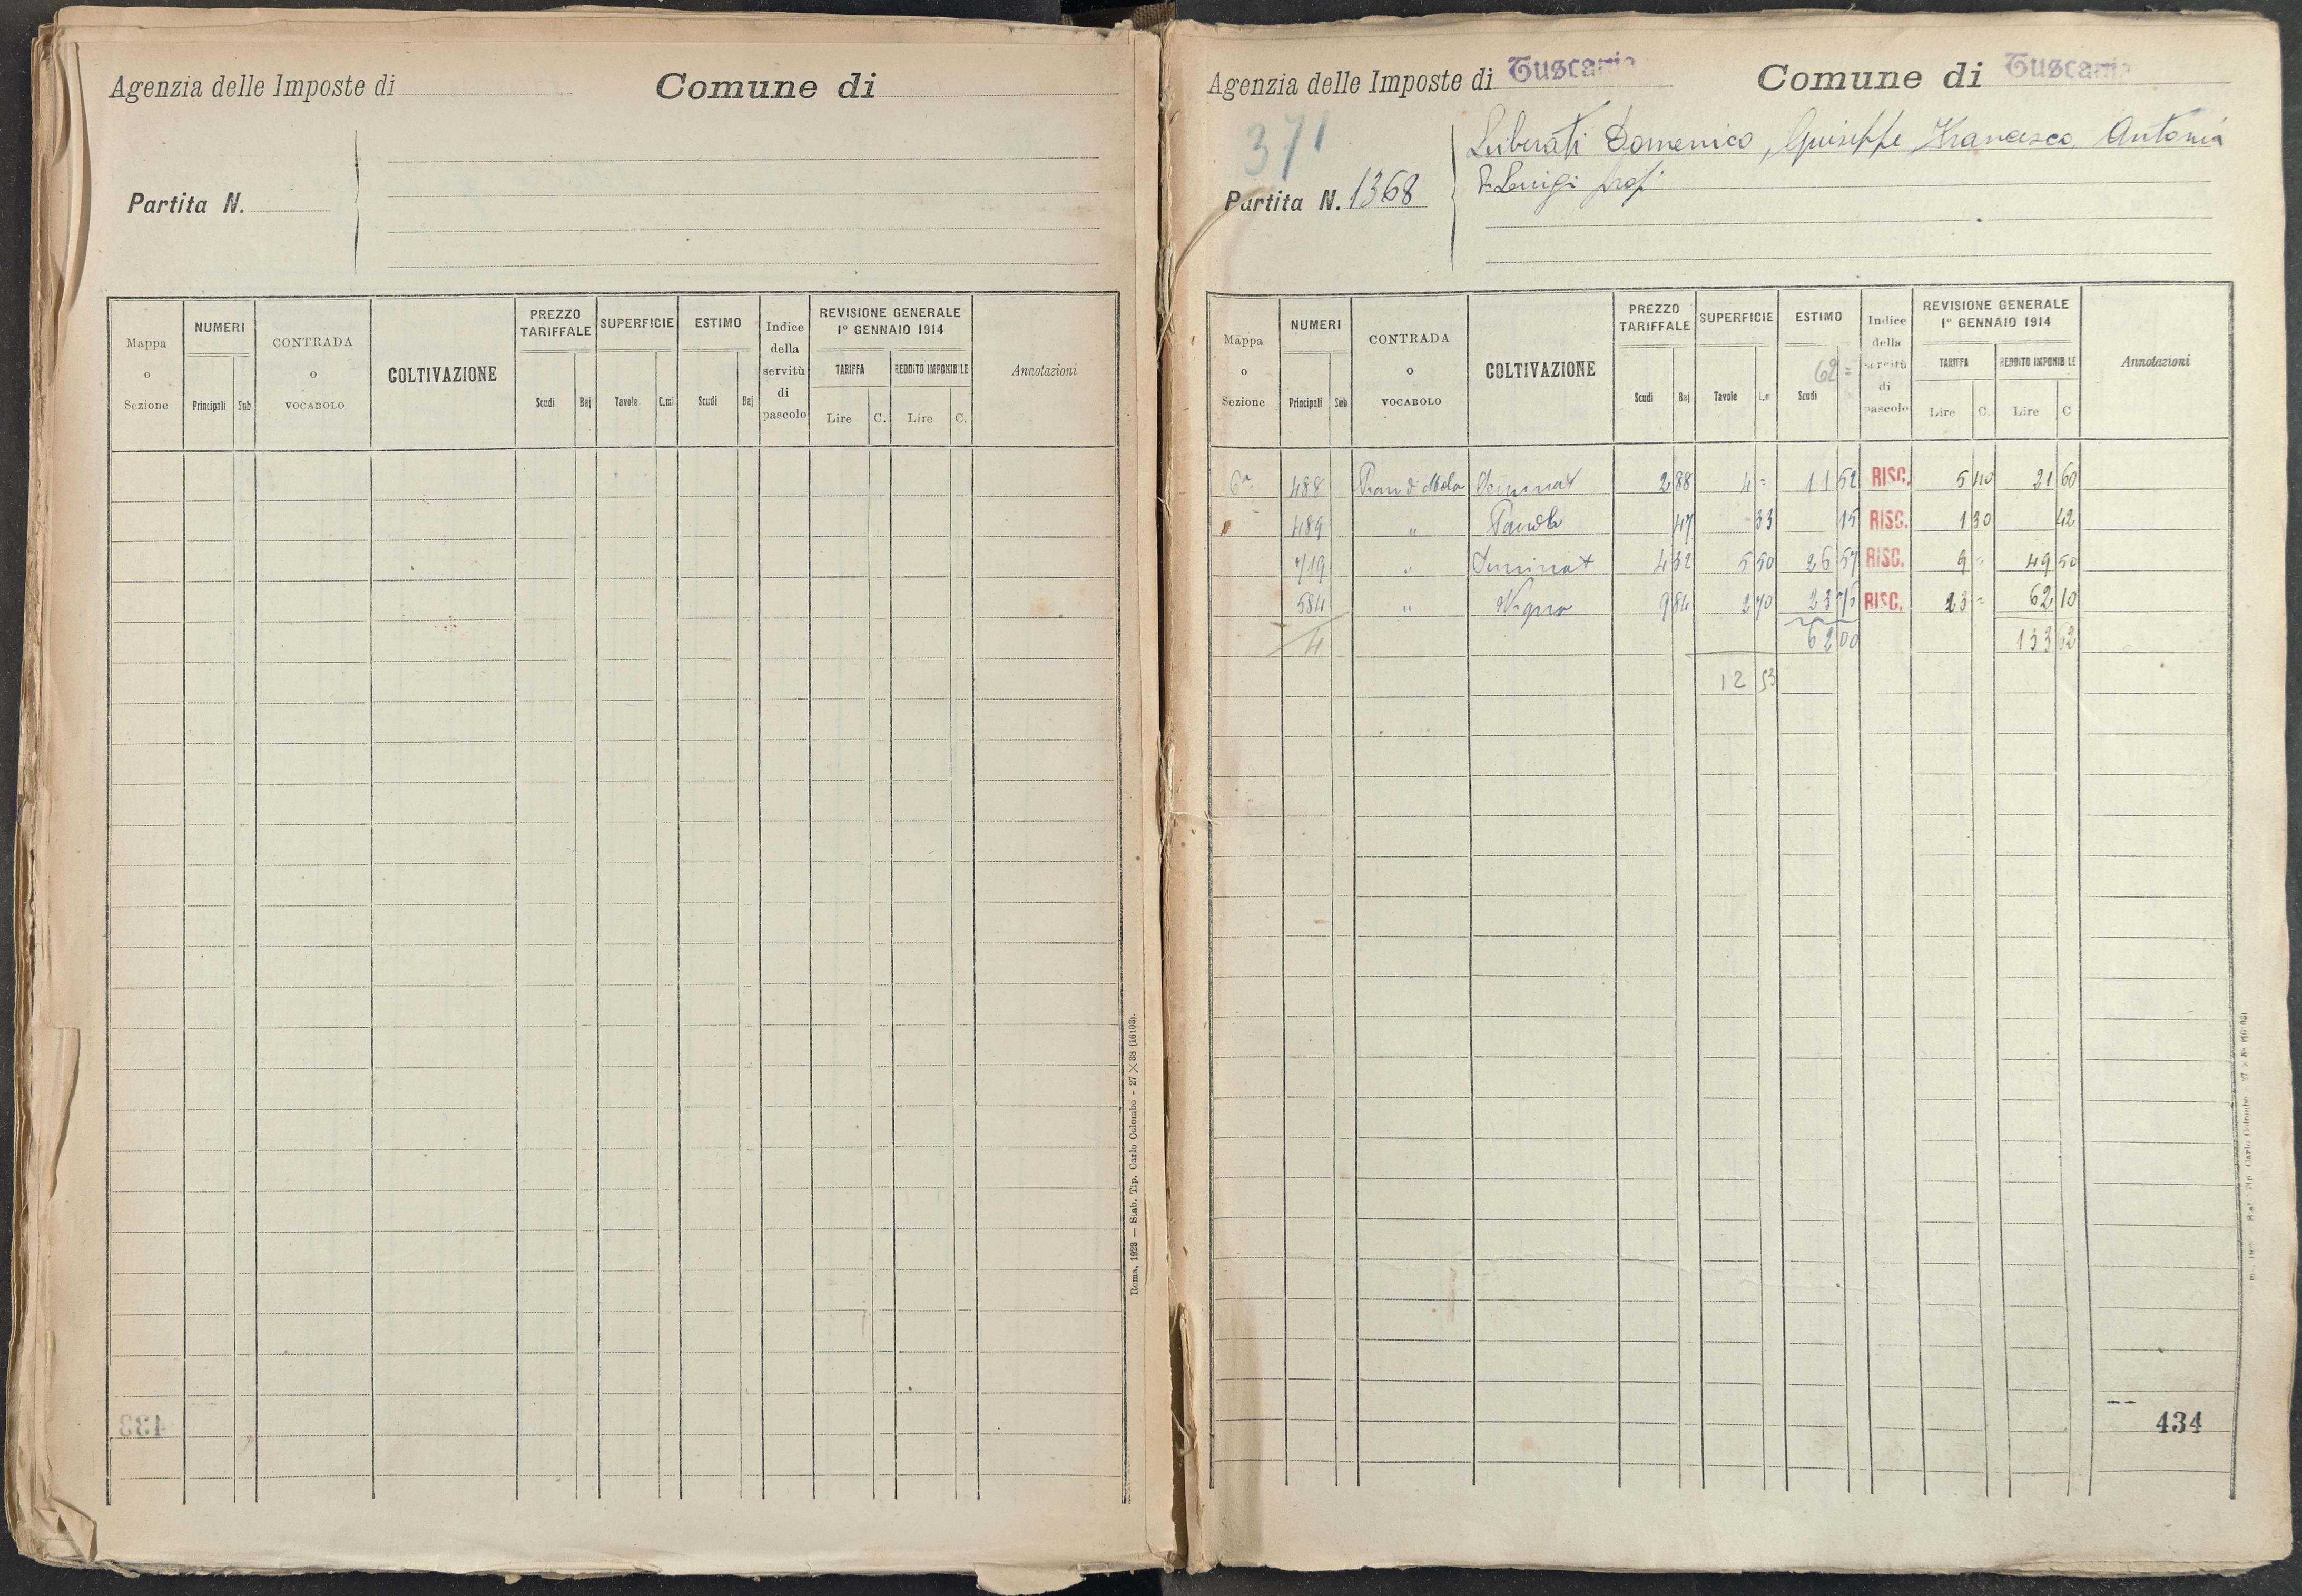 Agenzia delle Imposte di Comune di
Partita N.
Mappa o Sezione NUMERI CONTRADA o VOCABOLO COLTIVAZIONE PREZZO TARIFFALE SUPERFICIE ESTIMO Indice della servitù di pascolo REVISIONE GENERALE 1° GENNAIO 1914 Annotazioni
Principali Sub Scudi Baj Tavole C.mi Scudi Baj TARIFFA REDDITO IMPONIBILE
Lire C. Lire C.
433
Roma, 1923 — Stab. Tip. Carlo Colombo - 27 × 38 (16103).
Agenzia delle Imposte di Tuscania Comune di Tuscania
371
Liberati Domenico, Giuseppe Francesco Antonia
Partita N. 1368
Luigi
Mappa o Sezione NUMERI CONTRADA o VOCABOLO COLTIVAZIONE PREZZO TARIFFALE SUPERFICIE ESTIMO Indice della servitù di pascolo REVISIONE GENERALE 1° GENNAIO 1914 Annotazioni
62 =
Principali Sub Scudi Baj Tavole Scudi TARIFFA REDDITO IMPONIBILE
Lire C. Lire C
6a 488 Pian di Mola Seminat 2 88 4 = 11 52 RISC. 5 40 21 60
" 489 " 47 33 15 RISC. 1 30 42
719 " Seminat 4 82 5 50 26 57 RISC. 9 = 49 50
584 " Vigna 9 84 2 70 23 76 RISC. 23 = 62 10
4 62 00 133 62
12 53
434